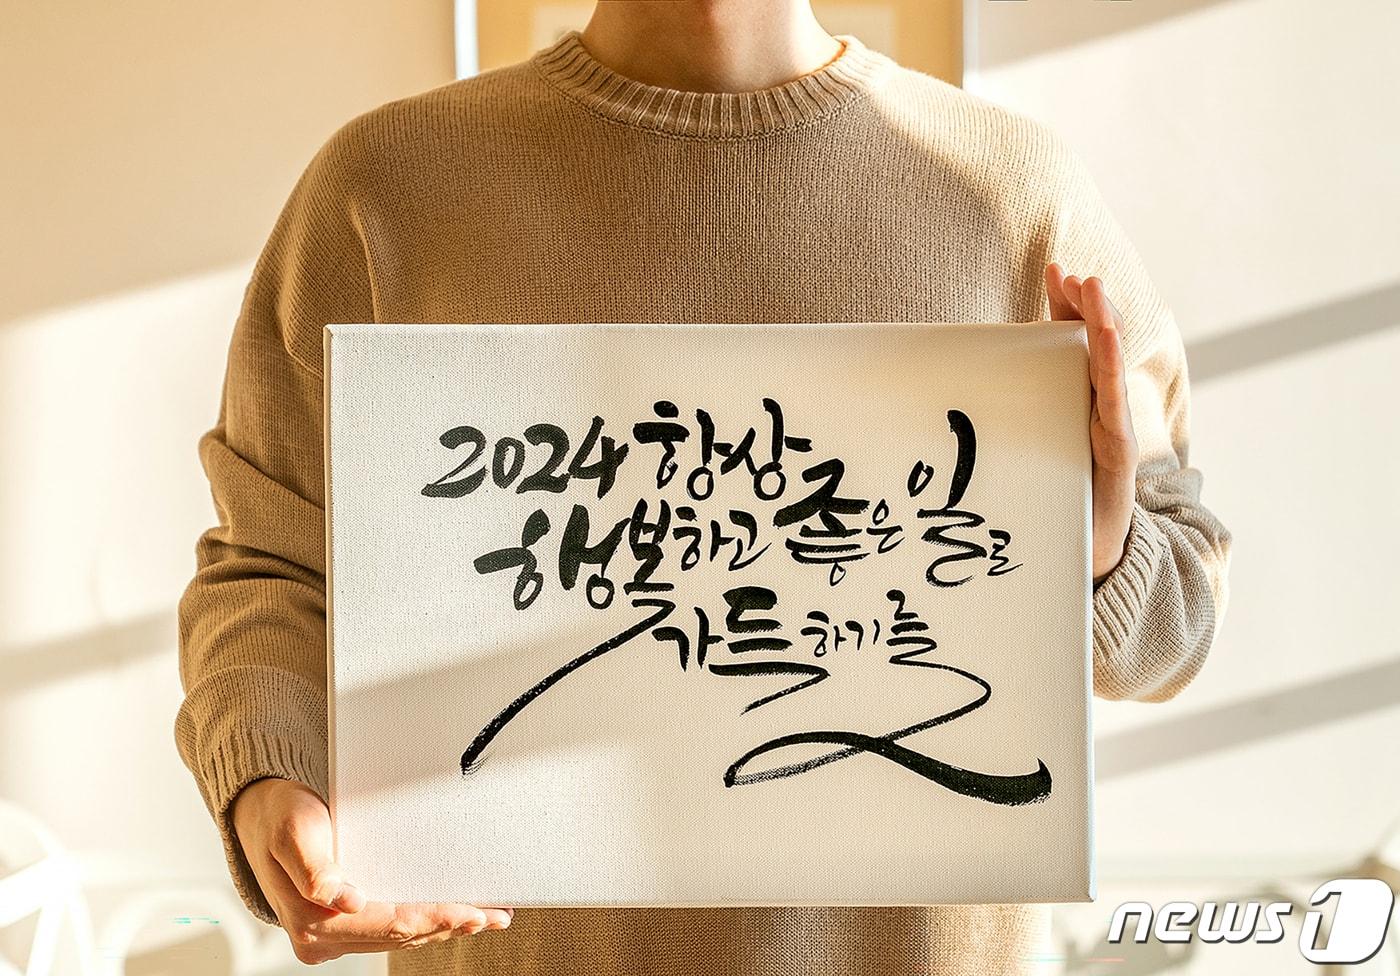 2024 항상
행복하고 좋은 일로
가득하기를
news1